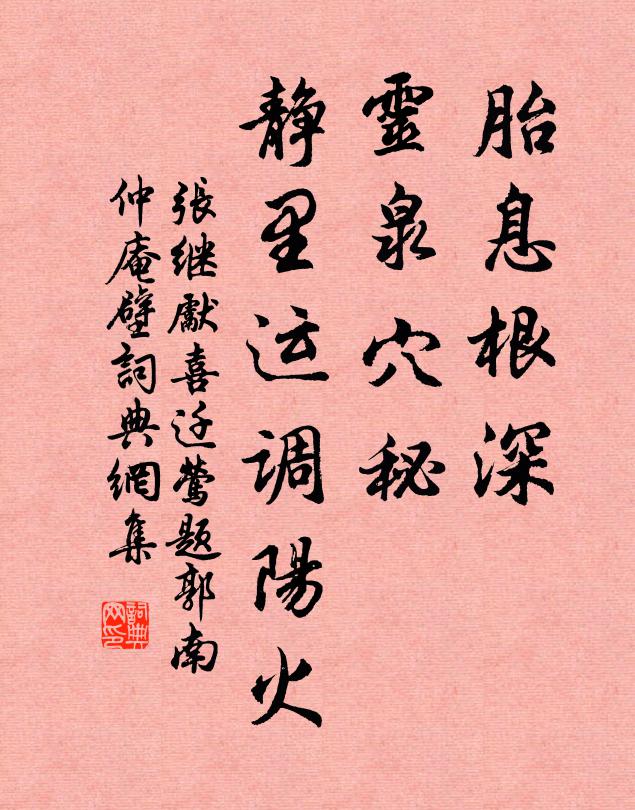 胎息根深
靈泉穴秘
静里运调陽火
張继獻喜迁鶯题郭南
仲庵壁詞典網集
詞典网印